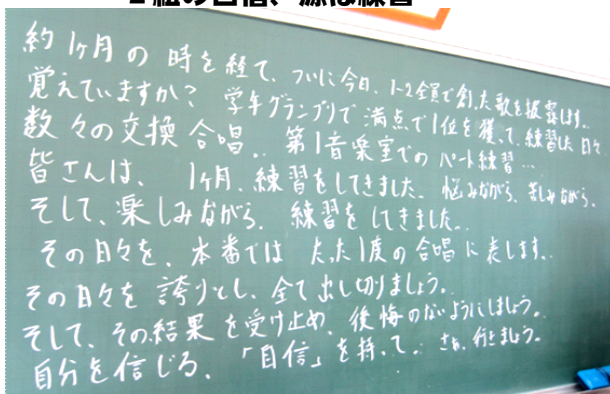 2組の自信、源は練習
約1ヶ月の時を経て、ついに今日、1-2全員で創った歌を披露します。
覚えていますか? 学年グランプリで満点で1位を獲って、練習した日々
数々の交換合唱。 第1音楽室でのパート練習…
皆さんは、1ヶ月、練習をしてきました。悩みながら、苦しみながら、
そして、楽しみながら、練習をしてきました。
その日々を、本番では たった1度の合唱に表します。
その日々を誇りとし、全て出し切りましょう。
そして、その結果を受け止め、後悔のないようにしましょう。
自分を信じる、「自信」を持って。さぁ、行きましょう。